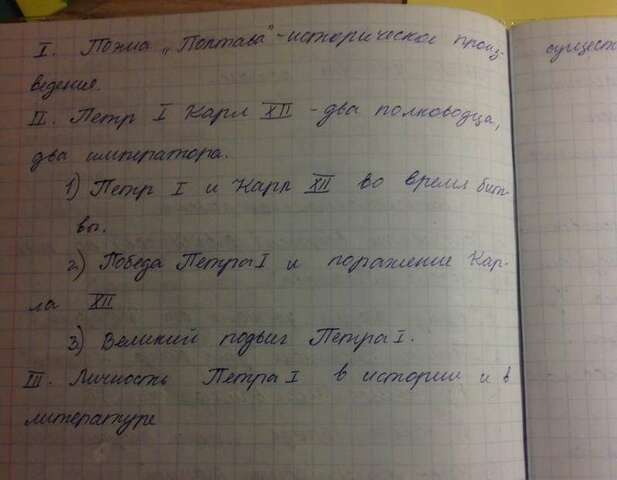 I. Поэма „Полтава" - историческое произ-
ведение.
II. Петр I Карл XII - два полководца,
два императора.
1) Петр I и Карл XII во время бит-
вы.
2) Победа Петра I и поражение Кар-
ла XII
3) Великий подвиг Петра I.
III. Личность Петра I в истории и в
литературе
сущест